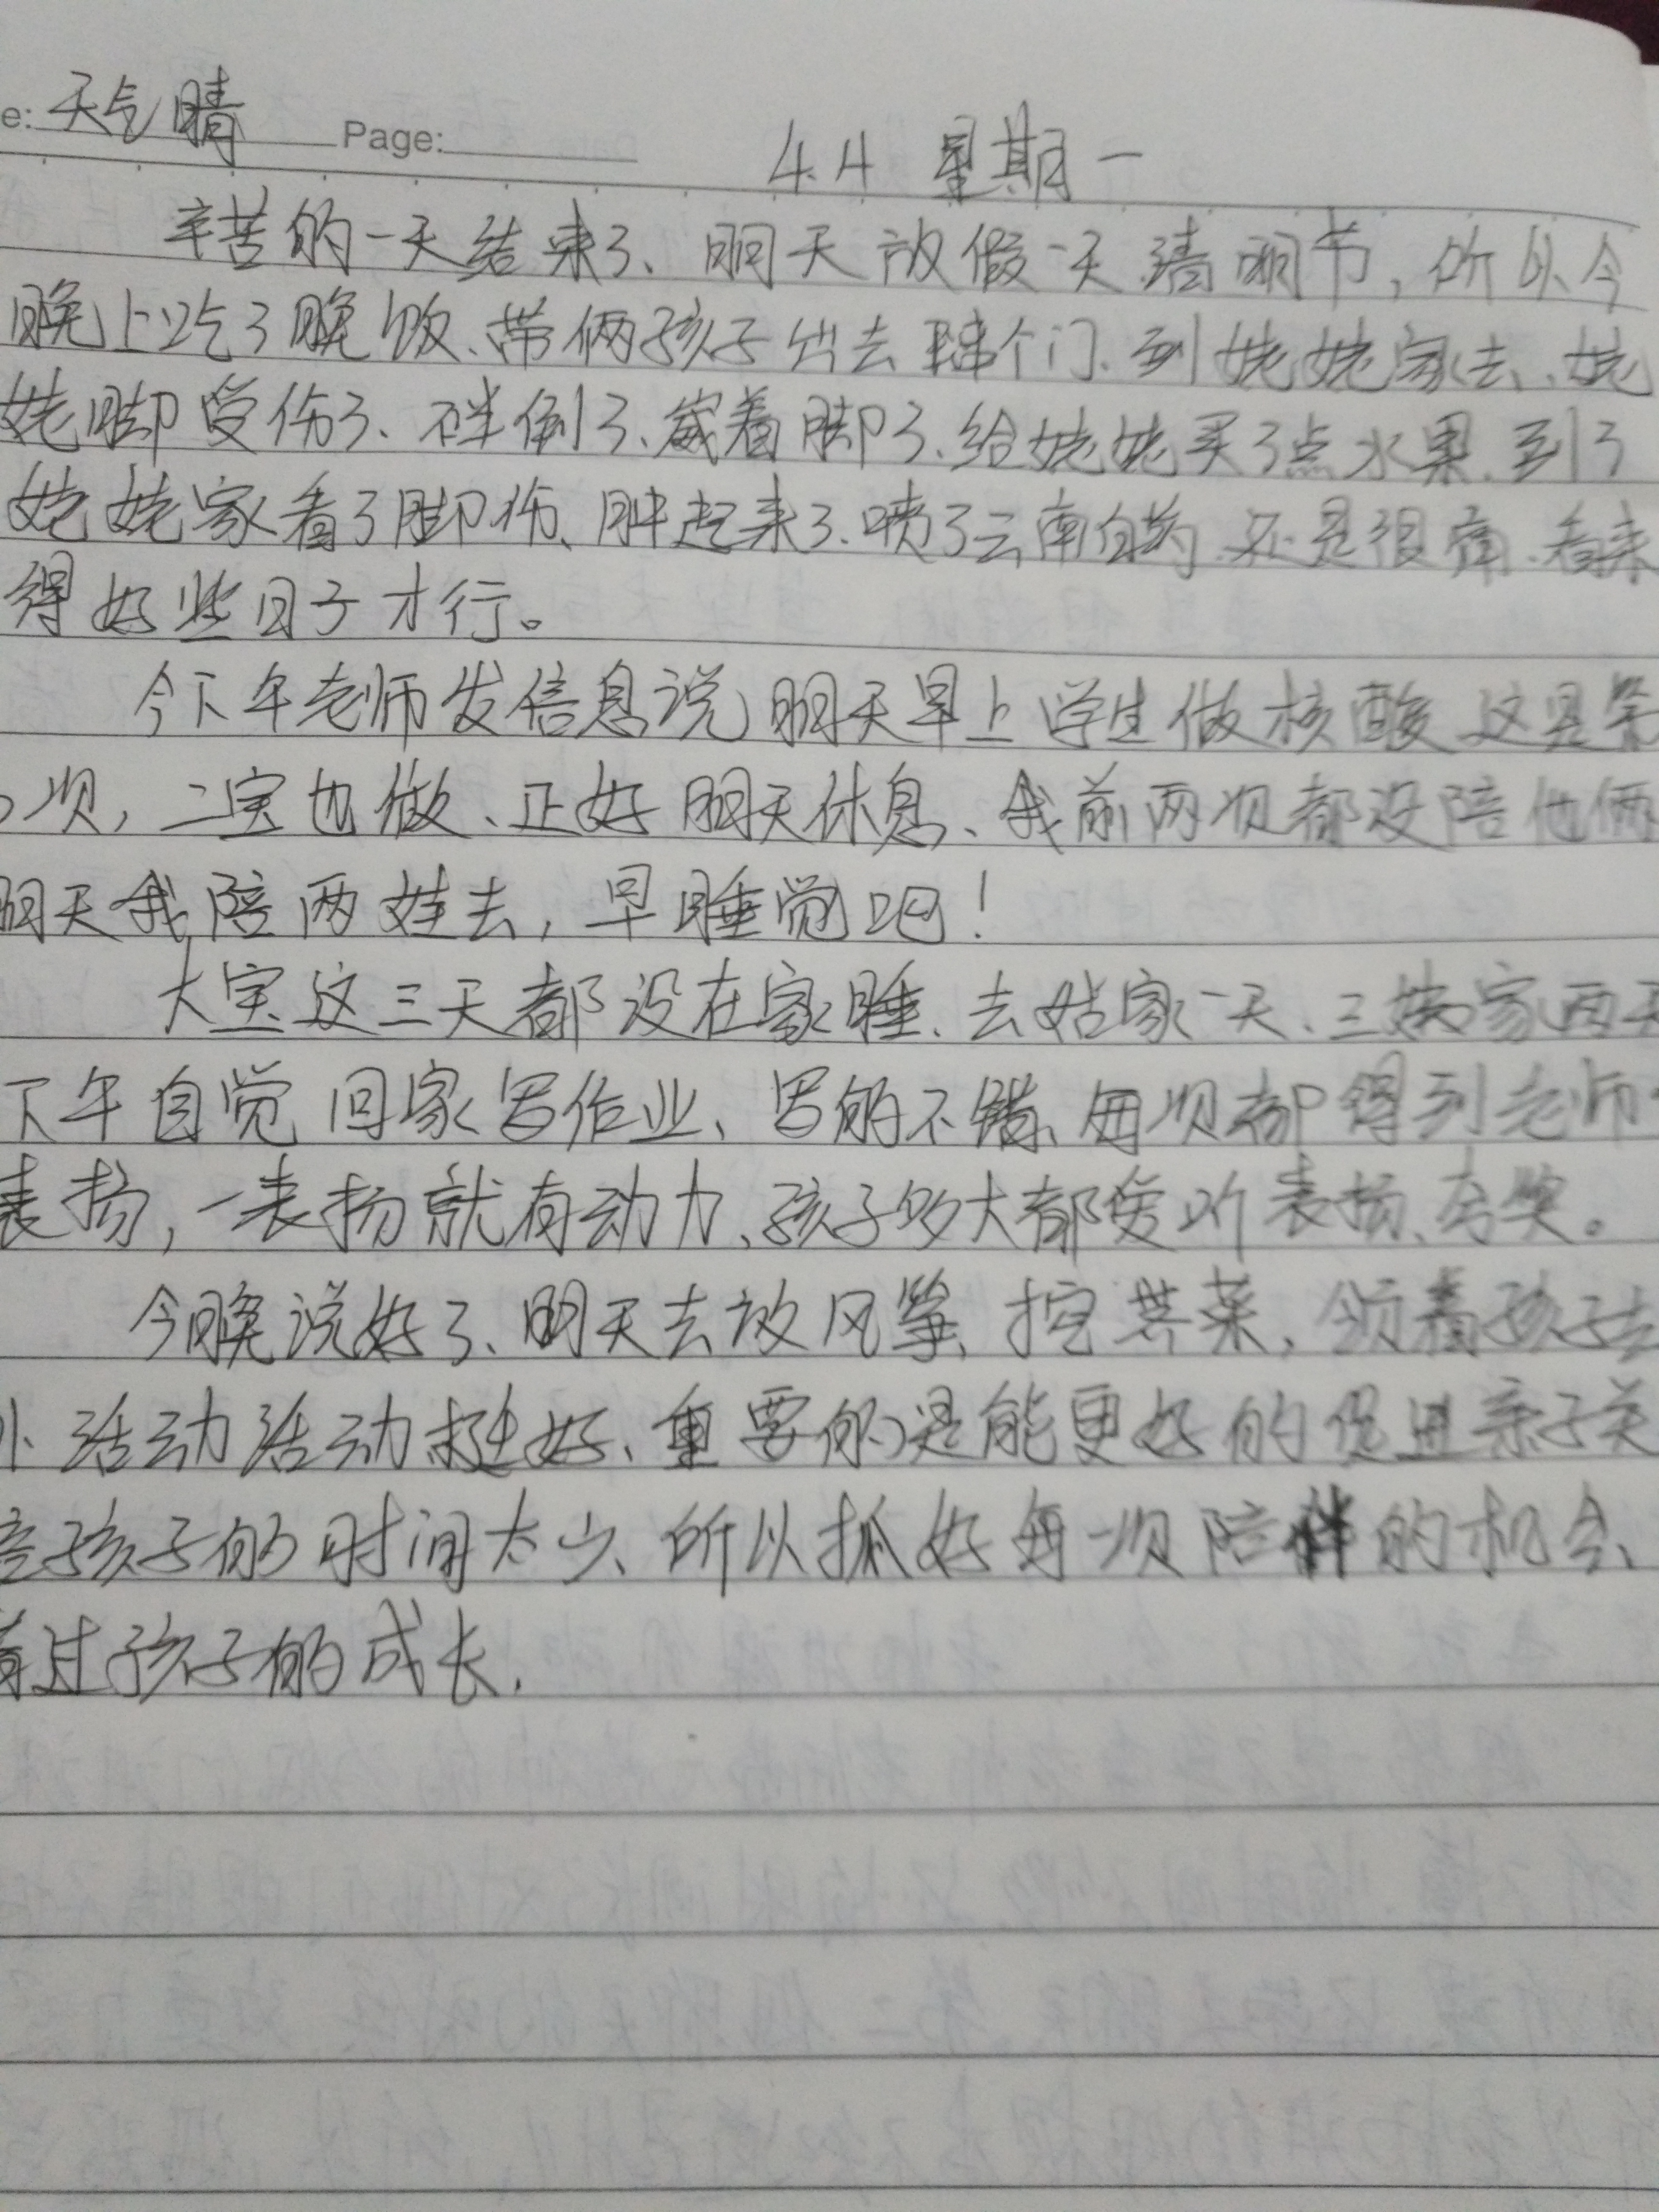 e: 天气晴 Page: 4.4 星期一
辛苦的一天结束了、明天放假一天清明节，所以今
晚上吃了晚饭、带俩孩子出去串个门、到姥姥家去、姥
姥脚受伤了、绊倒了、崴着脚了、给姥姥买了点水果、到了
姥姥家看了脚伤、肿起来了、喷了云南白药、还是很痛、看来
得好些日子才行。
今下午老师发信息说明天早上学生做核酸 这是第
次，二宝也做、正好明天休息、我前两次都没陪他俩
明天我陪两娃去，早睡觉吧！
大宝这三天都没在家睡、去姑家一天、三姨家两天
下午自觉回家写作业、写的不错、每次都得到老师
表扬，一表扬就有动力、孩子多大都爱听表扬、夸奖。
今晚说好了、明天去放风筝、挖荠菜，领着孩子去
外活动活动挺好、重要的是能更好的促进亲子关
孩子的时间太少、所以抓好每一次陪伴的机会、
过孩子的成长.